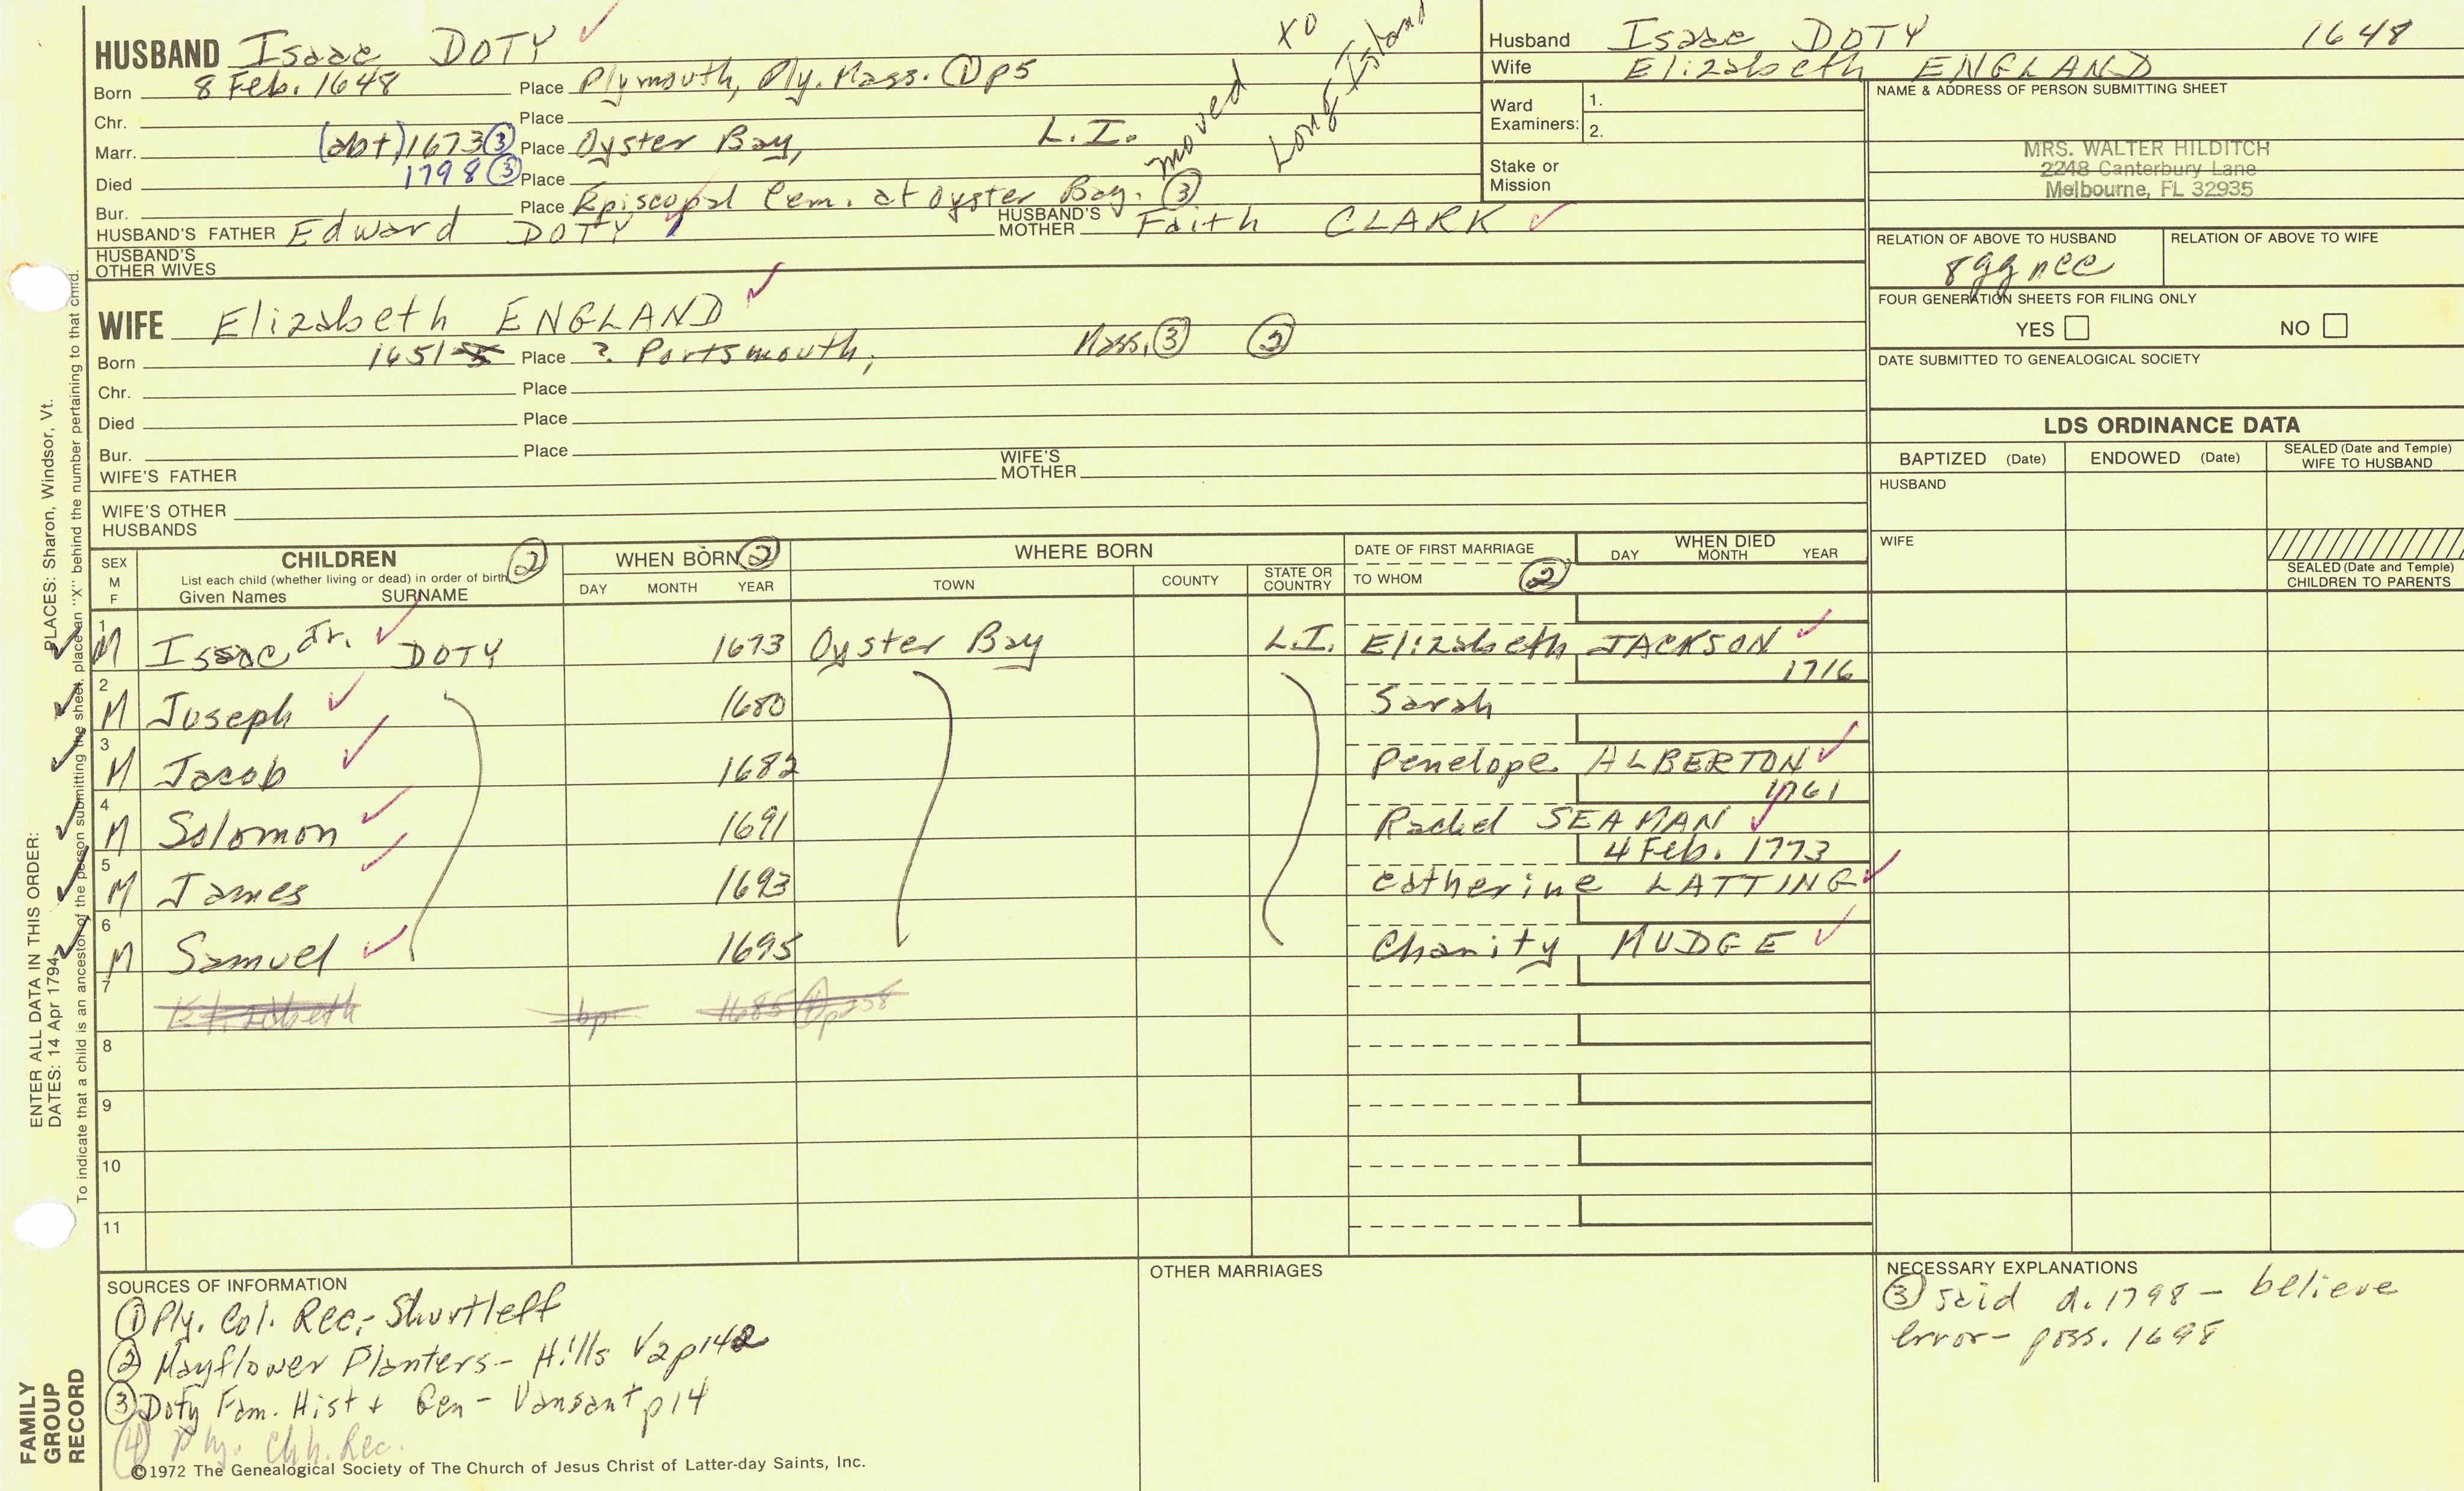 HUSBAND Isaac DOTY ✓
Born 8 Feb. 1648 Place Plymouth, Ply. Mass. ① p5
Chr. Place
Marr. (abt) 1673 ③ Place Oyster Bay, L.I.
Died 1798 ③ Place
Bur. Place Episcopal Cem. at Oyster Bay. ③
moved to
Long Island
HUSBAND'S FATHER Edward DOTY ✓ HUSBAND'S MOTHER Faith CLARK ✓
HUSBAND'S OTHER WIVES
WIFE Elizabeth ENGLAND ✓
Born 1651 Place ? Portsmouth, Mass. ③ ③
Chr. Place
Died Place
Bur. Place
WIFE'S FATHER WIFE'S MOTHER
WIFE'S OTHER HUSBANDS
Husband Isaac DOTY 1648
Wife Elizabeth ENGLAND
Ward Examiners: 1.
2.
Stake or Mission
NAME & ADDRESS OF PERSON SUBMITTING SHEET
MRS. WALTER HILDITCH
2248 Canterbury Lane
Melbourne, FL 32935
RELATION OF ABOVE TO HUSBAND RELATION OF ABOVE TO WIFE
8gg nee
FOUR GENERATION SHEETS FOR FILING ONLY
YES NO
DATE SUBMITTED TO GENEALOGICAL SOCIETY
LDS ORDINANCE DATA
BAPTIZED (Date) ENDOWED (Date) SEALED (Date and Temple) WIFE TO HUSBAND
HUSBAND
WIFE
SEALED (Date and Temple) CHILDREN TO PARENTS
SEX M F
CHILDREN ②
List each child (whether living or dead) in order of birth
Given Names SURNAME
WHEN BORN ②
DAY MONTH YEAR
WHERE BORN
TOWN COUNTY STATE OR COUNTRY
DATE OF FIRST MARRIAGE
TO WHOM ②
WHEN DIED
DAY MONTH YEAR
1 M Isaac Jr. DOTY 1673 Oyster Bay L.I. Elizabeth JACKSON ✓
1716
2 M Joseph 1680 Sarah
3 M Jacob 1682 Penelope ALBERTON ✓
1761
4 M Solomon 1691 Rachel SEAMAN ✓
4 Feb. 1773
5 M James 1693 Catherine LATTING ✓
6 M Samuel 1695 Charity MUDGE ✓
7 Elizabeth bp. 1685
8
9
10
11
SOURCES OF INFORMATION
① Ply. Col. Rec.- Shurtleff
② Mayflower Planters- Hills V2p142
③ Doty Fam. Hist + Gen - Vansant p14
(4) Ply. Chh. Rec.
OTHER MARRIAGES
NECESSARY EXPLANATIONS
③ said d. 1798 - believe
error- poss. 1698
©1972 The Genealogical Society of The Church of Jesus Christ of Latter-day Saints, Inc.
ENTER ALL DATA IN THIS ORDER:
DATES: 14 Apr 1794 PLACES: Sharon, Windsor, Vt.
To indicate that a child is an ancestor of the person submitting the sheet, place an "X" behind the number pertaining to that child.
FAMILY
GROUP
RECORD